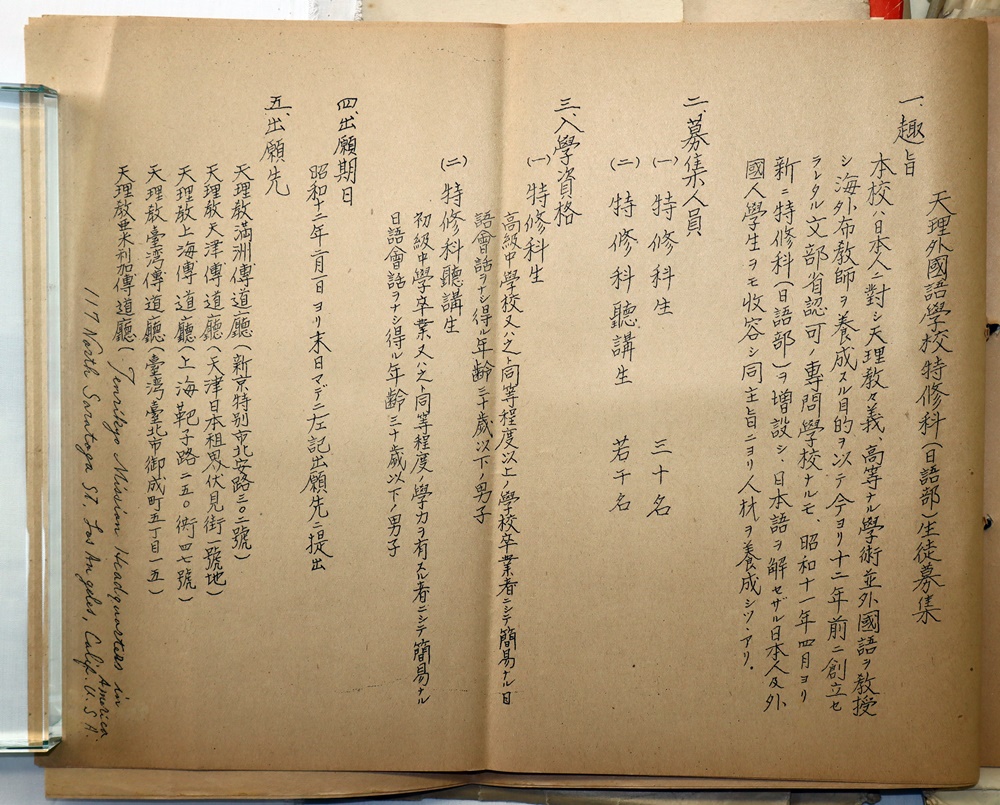 天理外國語學校特修科(日語部)生徒募集
一、趣旨
本校ハ日本人ニ對シ天理敎々義、高等ナル學術並外國語ヲ敎授
シ海外布敎師ヲ養成スル目的ヲ以テ今ヨリ十二年前ニ創立セ
ラレタル文部省認可ノ專問學校ナルモ、昭和十一年四月ヨリ
新ニ特修科(日語部)ヲ增設シ、日本語ヲ解セザル日本人及外
國人學生ヲモ收容シ同主旨ニヨリ人材ヲ養成シツヽアリ.
二、募集人員
(一) 特修科生 三十名
(二) 特修科聽講生 若干名
三、入學資格
(一) 特修科生
高級中學校又ハ之ト同等程度以上ノ學校卒業者ニシテ簡易ナル日
語會話ヲナシ得ル年齡三十歲以下ノ男子
(二) 特修科聽講生
初級中學卒業又ハ之ト同等程度ノ學力ヲ有スル者ニシテ簡易ナル
日語會話ヲナシ得ル年齡三十歲以下ノ男子
四、出願期日
昭和十二年二月一日ヨリ末日マデニ左記出願先ニ提出
五、出願先
天理敎滿洲傳道廳(新京特別市北安路三〇二號)
天理敎天津傳道廳(天津日本租界伏見街一號地)
天理敎上海傳道廳(上海靶子路二五〇衖四七號)
天理敎臺灣傳道廳(臺灣臺北市御成町五丁目一五)
天理敎亜米利加傳道廳(Tenrikyo Mission Headquarters in America.
1117 North Saratoga St. Los Angeles, Calif. U.S.A.